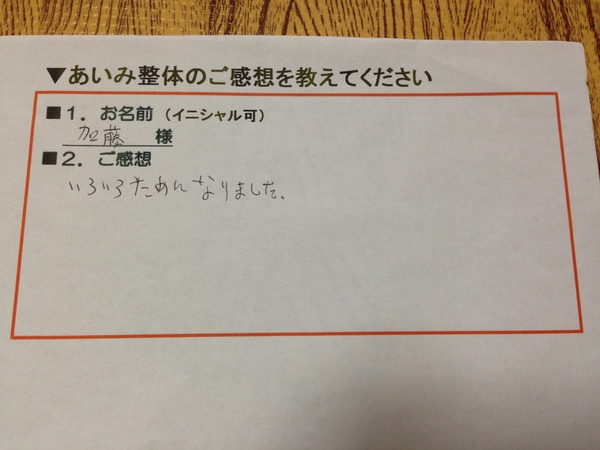 ▼あいみ整体のご感想を教えてください
■1．お名前（イニシャル可）
加藤 様
■2．ご感想
いろいろためんなりました。